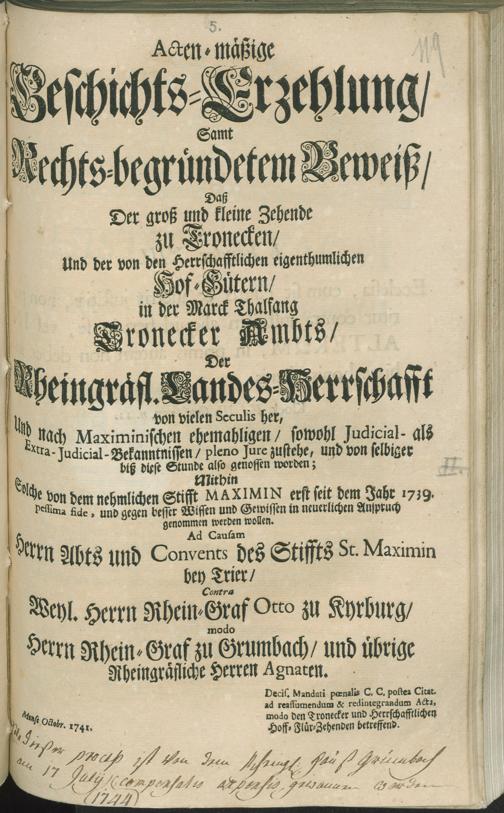 5.
119
Acten-mäßige
Geschichts-Erzehlung/
Samt
Rechts-begründetem Beweiß/
Daß
Der groß und kleine Zehende
zu Tronecken/
Und der von den Herrschafftlichen eigenthumlichen
Hof-Gütern/
in der Marck Thalfang
Tronecker Ambts/
Der
Rheingräfl. Landes-Herrschafft
von vielen Seculis her,
Und nach Maximinischen ehemahligen/ sowohl Judicial- als
Extra-Judicial-Bekanntnissen/ pleno Jure zustehe, und von selbiger
biß diese Stunde also genossen worden;
Mithin
Solche von dem nehmlichen Stifft MAXIMIN erst seit dem Jahr 1739.
pessima fide, und gegen besser Wissen und Gewissen in neuerlichen Anspruch
genommen werden wollen.
Ad Causam
Herrn Abts und Convents des Stiffts St. Maximin
bey Trier/
Contra
Weyl. Herrn Rhein-Graf Otto zu Kyrburg/
modo
Herrn Rhein-Graf zu Grumbach/ und übrige
Rheingräfliche Herren Agnaten.
Decis. Mandati pœnalis C. C. postea Citat.
ad reassumendum & redintegrandum Acta,
modo den Tronecker und Herrschafftlichen
Hoff-Flur-Zehenden betreffend.
Mense Octobr. 1741.
II.
Dießer process ist von dem
am 17 July compensatis expensis worden
(1744)